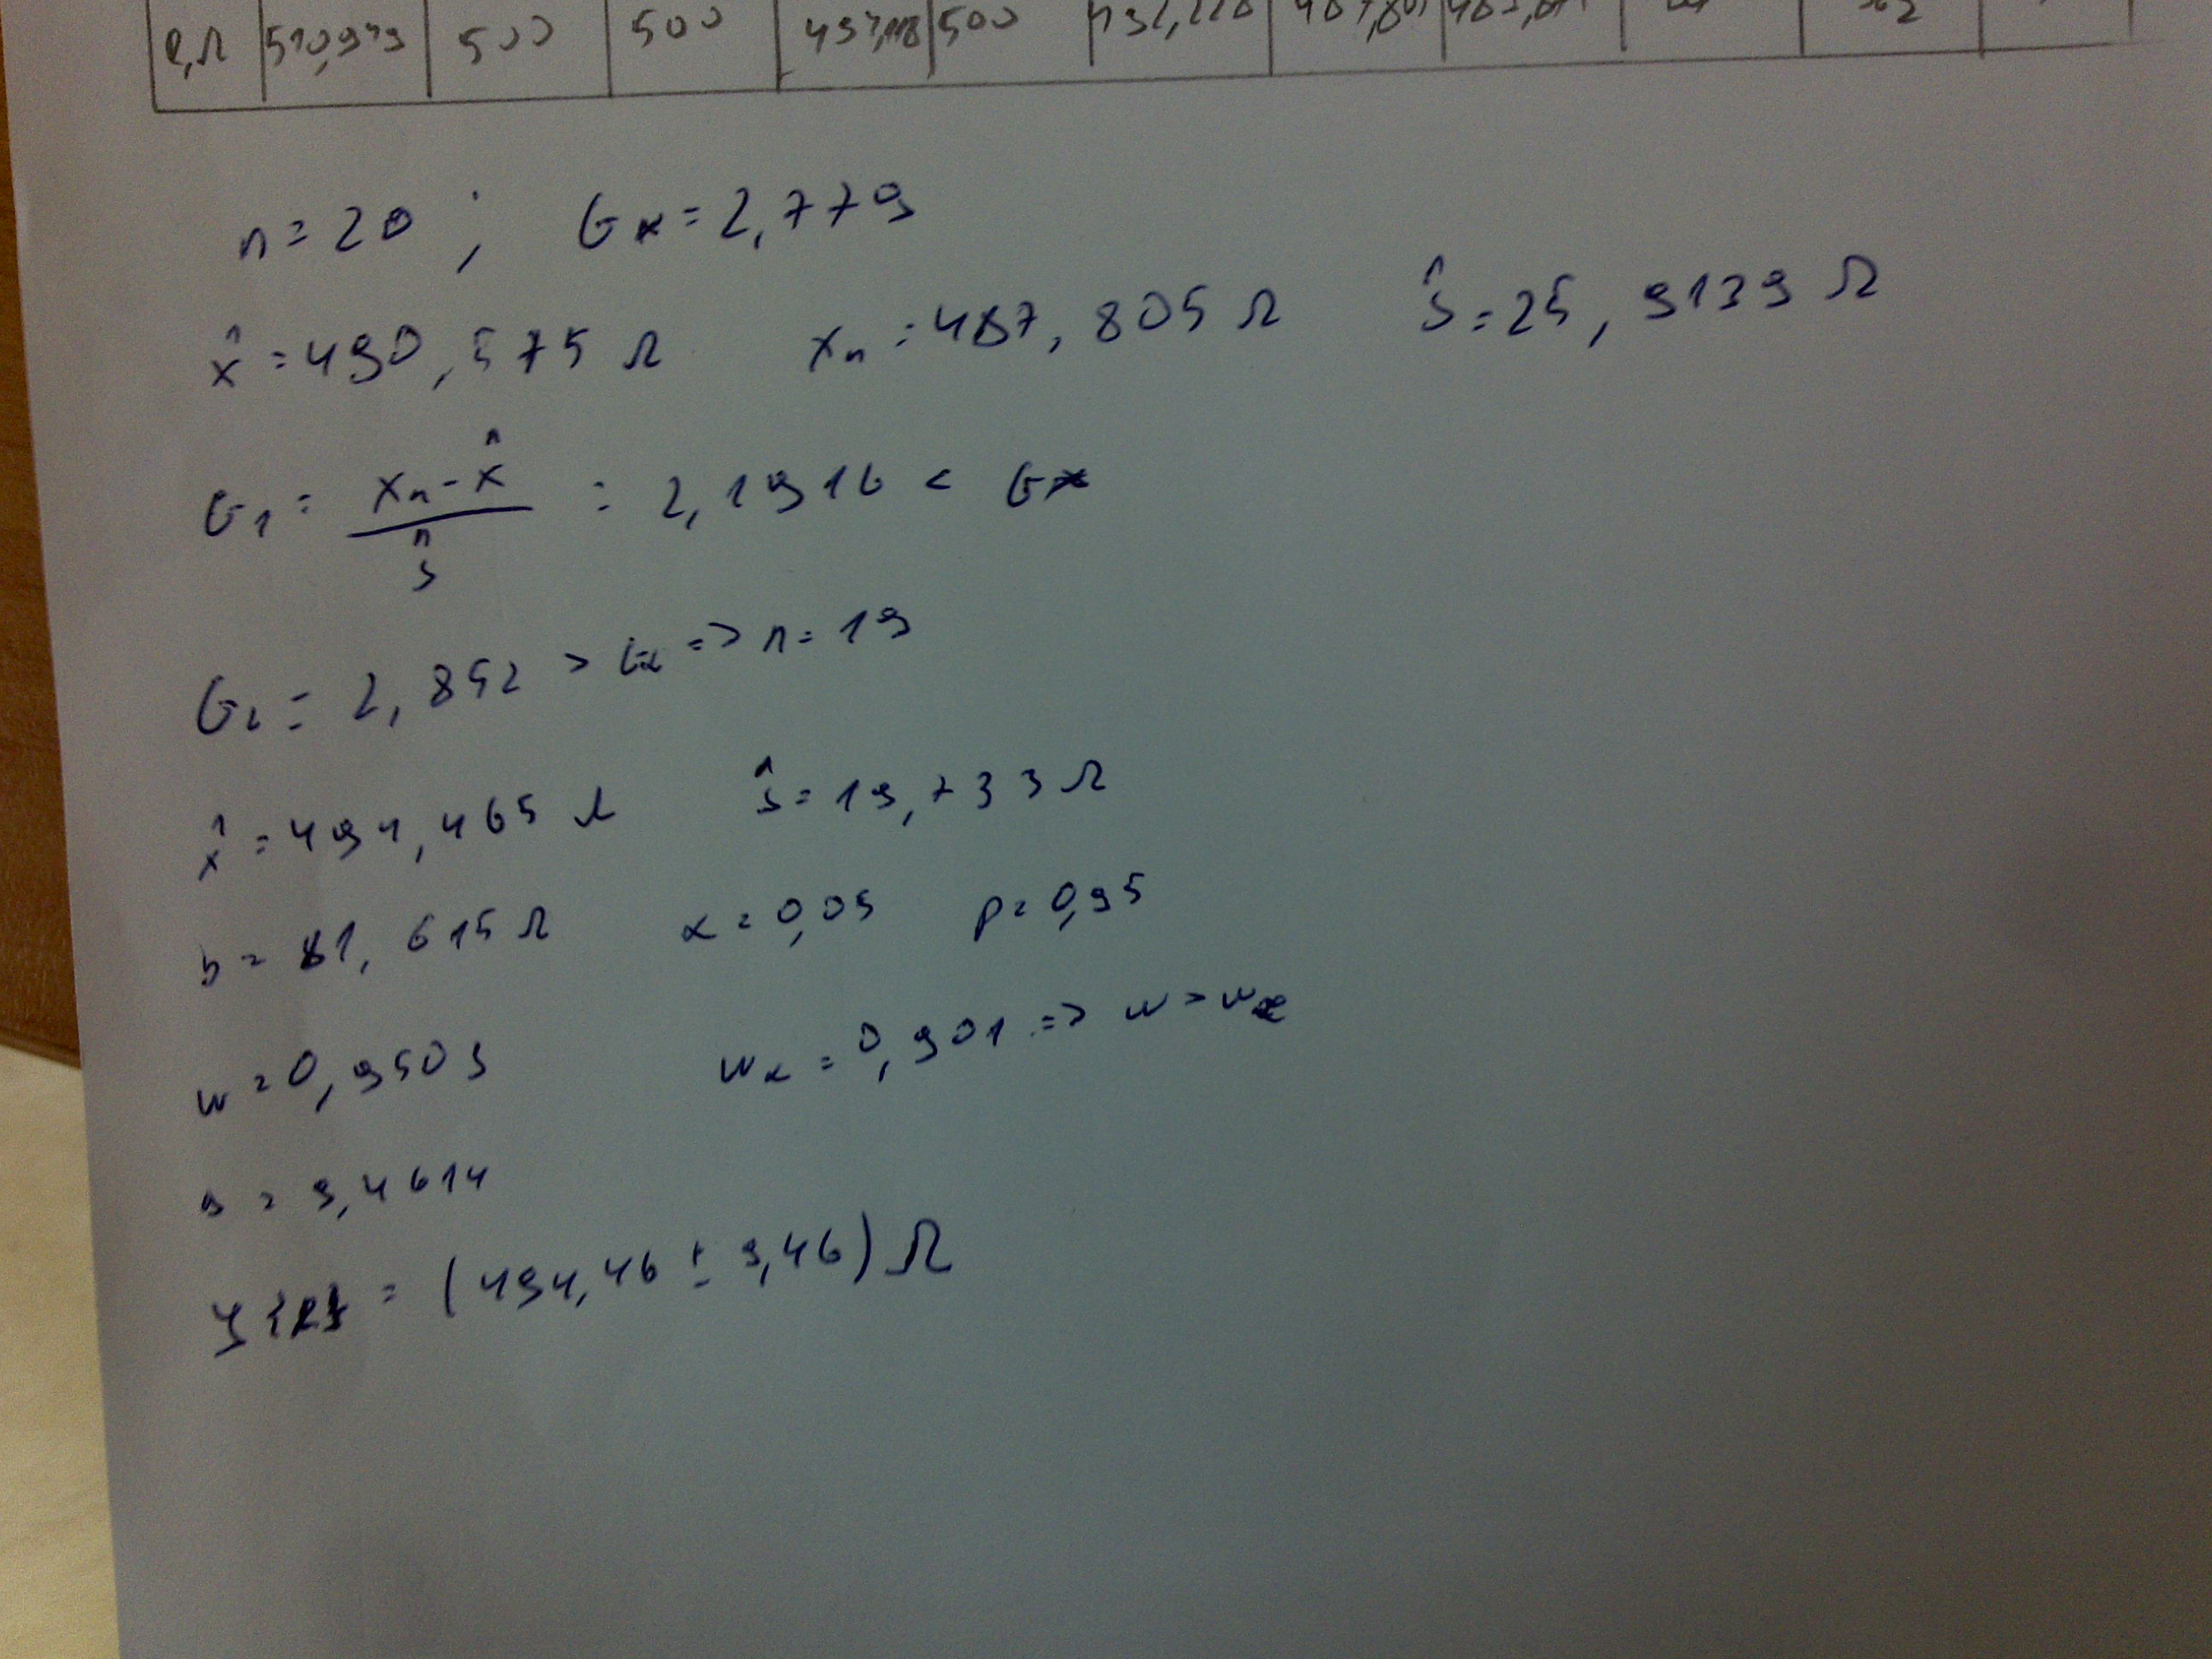 R,Ω 510,949 500 500 497,118 500
n=20 ; Gα=2,779
x̂=490,575 Ω xₙ=487,805 Ω ŝ=25,9139 Ω
G₁ = (xₙ-x̂)/ŝ = 2,1916 < Gα
G₂ = 2,852 > Gα => n=19
x̂=494,465 Ω ŝ=19,733 Ω
b = 81,615 Ω α=0,05 p=0,95
w=0,9509 wα=0,901 => w>wα
= 9,4614
= (494,46 ± 9,46) Ω